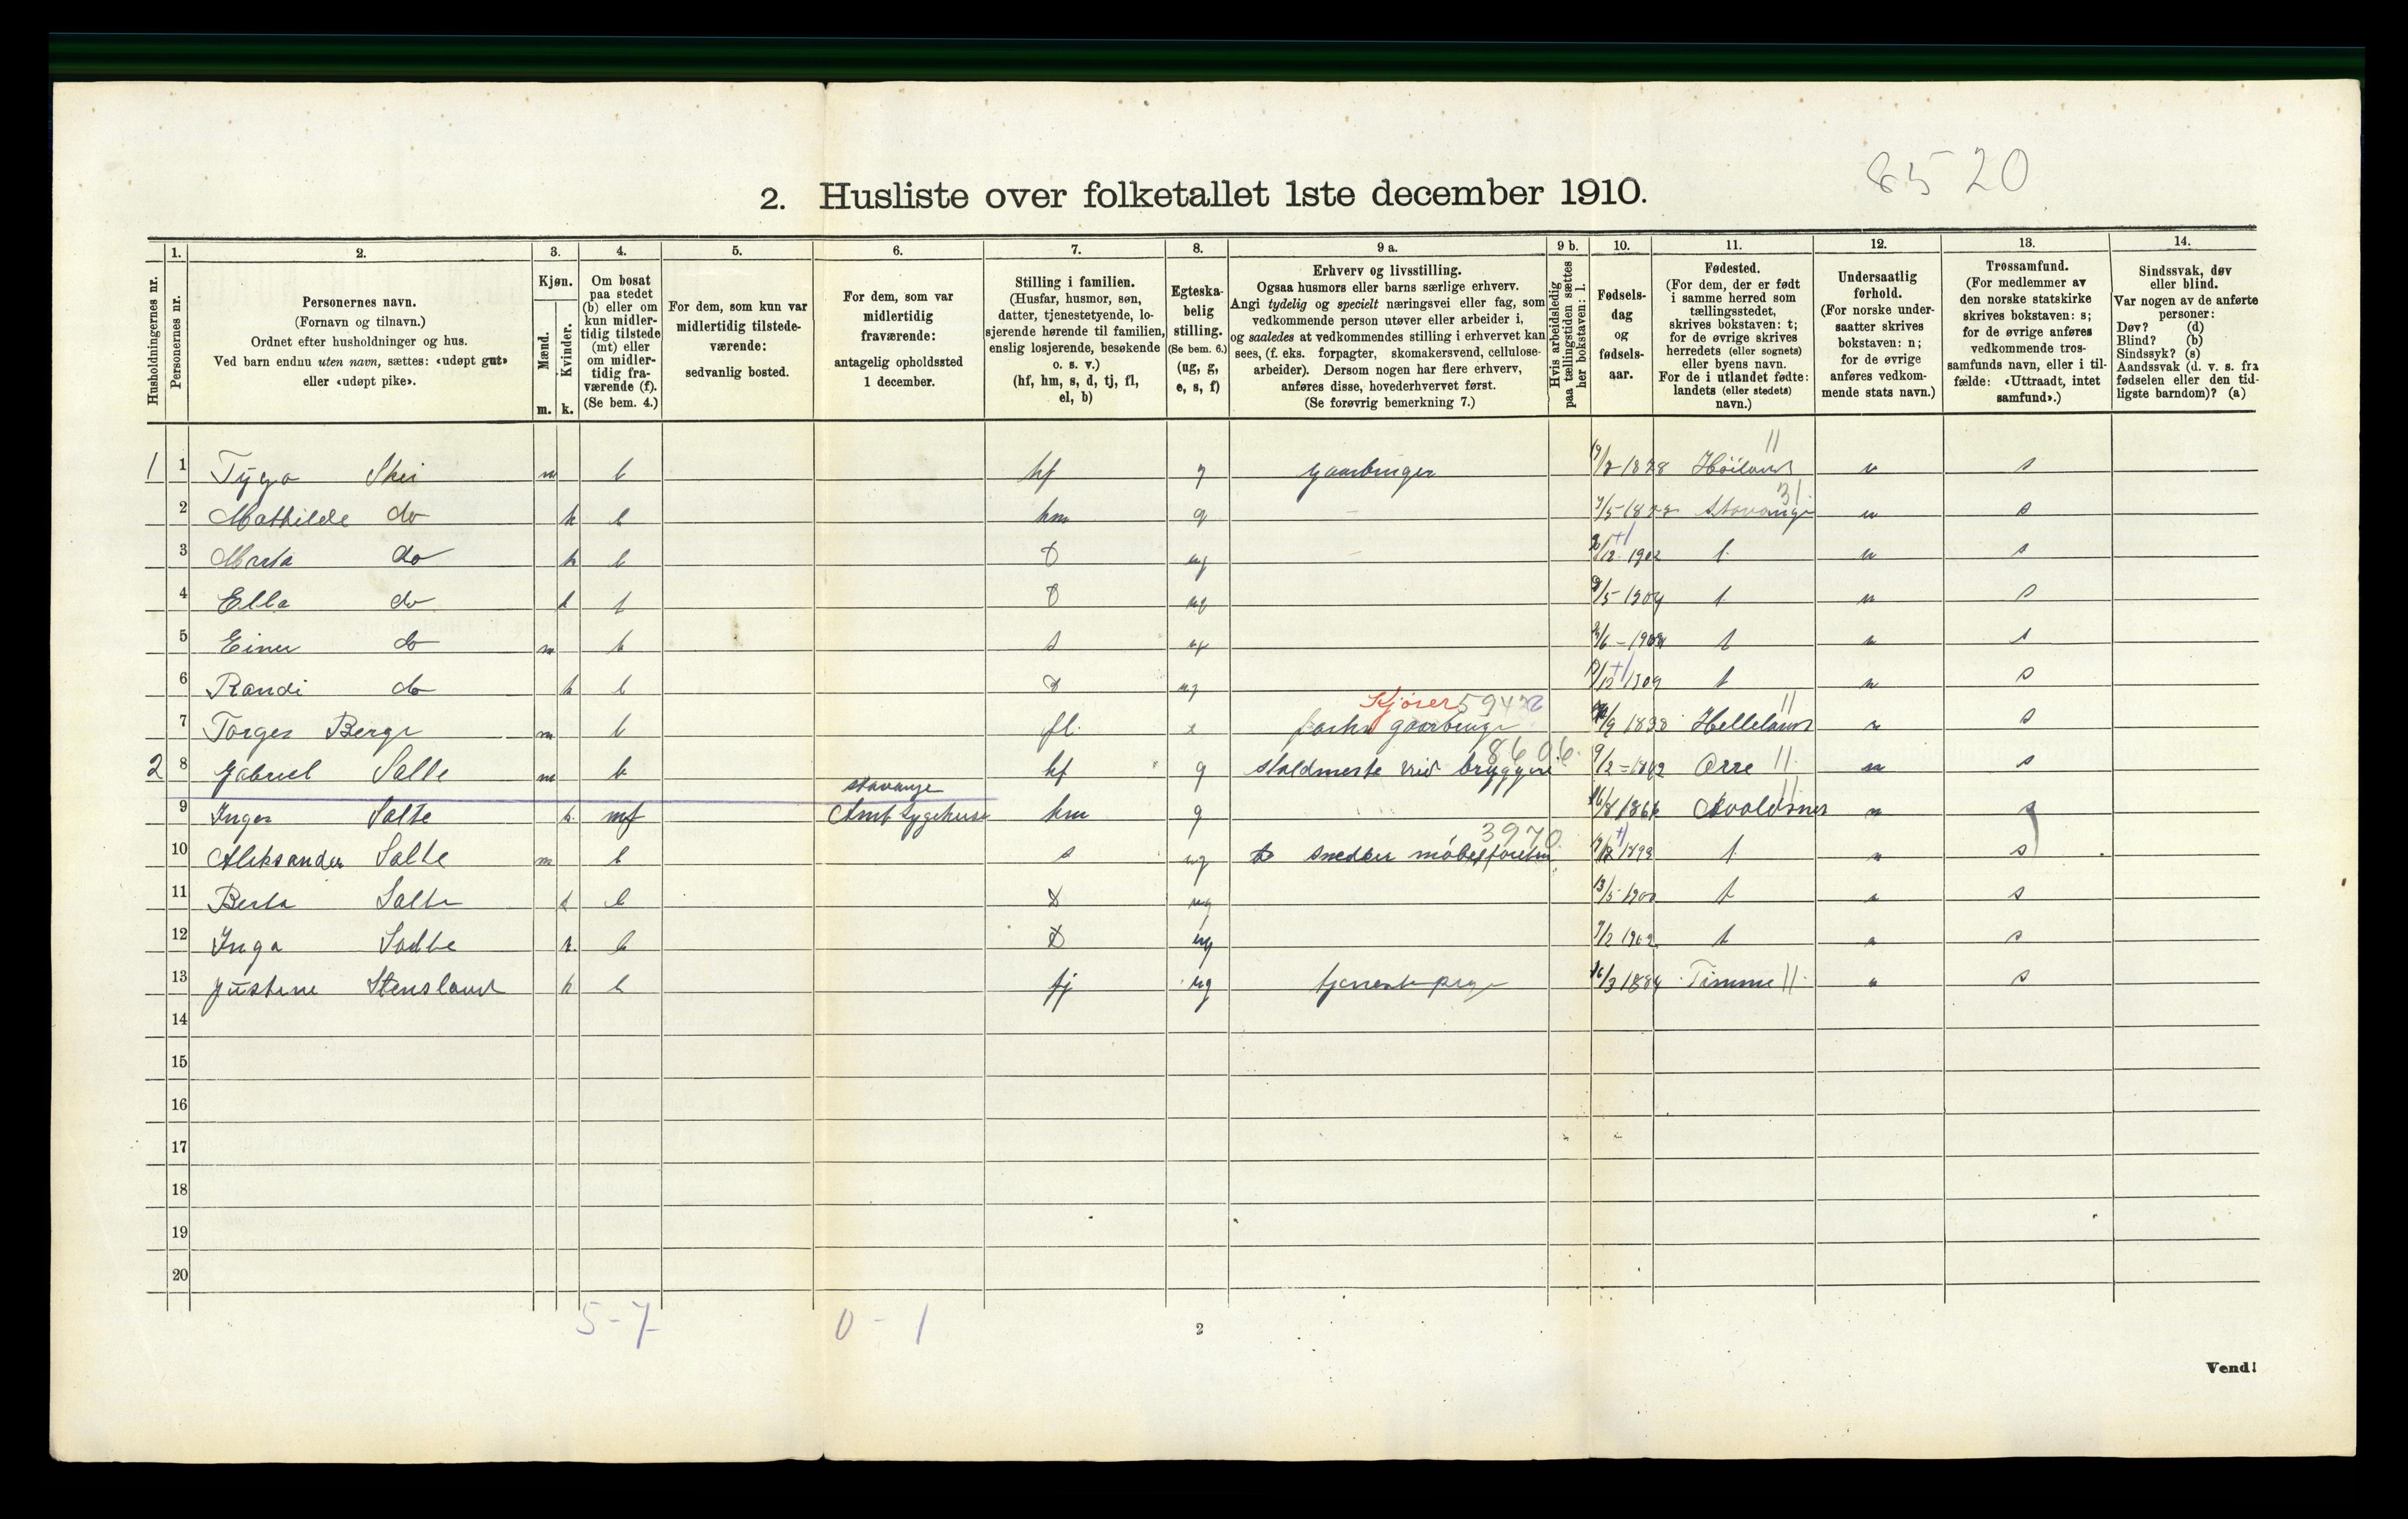 8520
2. Husliste over folketallet 1ste december 1910.
Husholdningernes nr.
1.
Personernes nr.
2.
Personernes navn.
(Fornavn og tilnavn.)
Ordnet efter husholdninger og hus.
Ved barn endnu uten navn, sættes: «udøpt gut»
eller «udøpt pike».
3.
Kjøn.
Mænd.
Kvinder.
m. k.
4.
Om bosat
paa stedet
(b) eller om
kun midler-
tidig tilstede
(mt) eller
om midler-
tidig fra-
værende (f).
(Se bem. 4.)
5.
For dem, som kun var
midlertidig tilstede-
værende:
sedvanlig bosted.
6.
For dem, som var
midlertidig
fraværende:
antagelig opholdssted
1 december.
7.
Stilling i familien.
(Husfar, husmor, søn,
datter, tjenestetyende, lo-
sjerende hørende til familien,
enslig losjerende, besøkende
o. s. v.)
(hf, hm, s, d, tj, fl,
el, b)
8.
Egteska-
belig
stilling.
(Se bem. 6.)
(ug, g,
e, s, f)
9 a.
Erhverv og livsstilling.
Ogsaa husmors eller barns særlige erhverv.
Angi tydelig og specielt næringsvei eller fag, som
vedkommende person utøver eller arbeider i,
og saaledes at vedkommendes stilling i erhvervet kan
sees, (f. eks. forpagter, skomakersvend, cellulose-
arbeider). Dersom nogen har flere erhverv,
anføres disse, hovederhvervet først.
(Se forøvrig bemerkning 7.)
9 b.
Hvis arbeidsledig
paa tællingstiden sættes
her bokstaven: l.
10.
Fødsels-
dag
og
fødsels-
aar.
11.
Fødested.
(For dem, der er født
i samme herred som
tællingsstedet,
skrives bokstaven: t;
for de øvrige skrives
herredets (eller sognets)
eller byens navn.
For de i utlandet fødte:
landets (eller stedets)
navn.)
12.
Undersaatlig
forhold.
(For norske under-
saatter skrives
bokstaven: n;
for de øvrige
anføres vedkom-
mende stats navn.)
13.
Trossamfund.
(For medlemmer av
den norske statskirke
skrives bokstaven: s;
for de øvrige anføres
vedkommende tros-
samfunds navn, eller i til-
fælde: «Uttraadt, intet
samfund».)
14.
Sindssvak, døv
eller blind.
Var nogen av de anførte
personer:
Døv? (d)
Blind? (b)
Sindssyk? (s)
Aandssvak (d. v. s. fra
fødselen eller den tid-
ligste barndom)? (a)
1 1 m b hf g Høiland n s
2 Mathilde do k b hm g Stavanger 31 n s
3 do k b D ug 1902 t n s
4 Ella do k b D ug t n s
5 Einer do m b s ug t n s
6 Randi do k b D ug 1909 t n s
Kjører
7 Torger Berge m b fl. Helleland n s
8606
2 8 Gabriel Salte m b hf g Orre n s
Stavanger
9 Inger Salte k mf hm g n s
3970
10 Aleksander Salte m b s ug snedker t n s
11 Berta Salte k b D ug t n s
12 Inga Salte k b D ug t n s
13 Justine Stensland k b tj ug Timme n s
14
15
16
17
18
19
20
5-7 0-1
2
Vend!